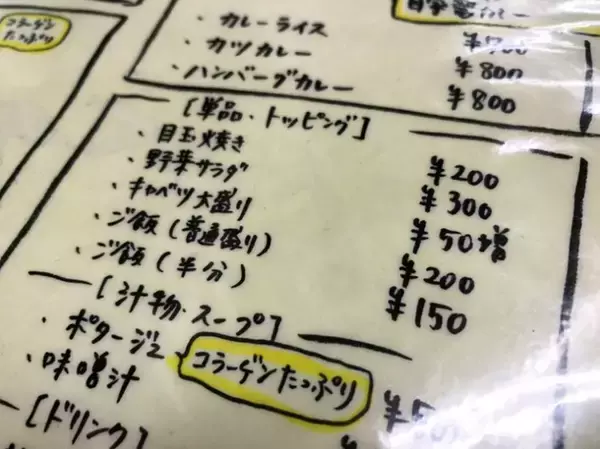 コラーゲン
たっぷり
自家電カレー
・カレーライス ¥700
・カツカレー ¥800
・ハンバーグカレー ¥800
[単品・トッピング]
・目玉焼き ¥200
・野菜サラダ ¥300
・キャベツ大盛り ¥50増
・ご飯(普通盛り) ¥200
・ご飯(半分) ¥150
[汁物・スープ]
・ポタージュ コラーゲンたっぷり
・味噌汁
[ドリンク]